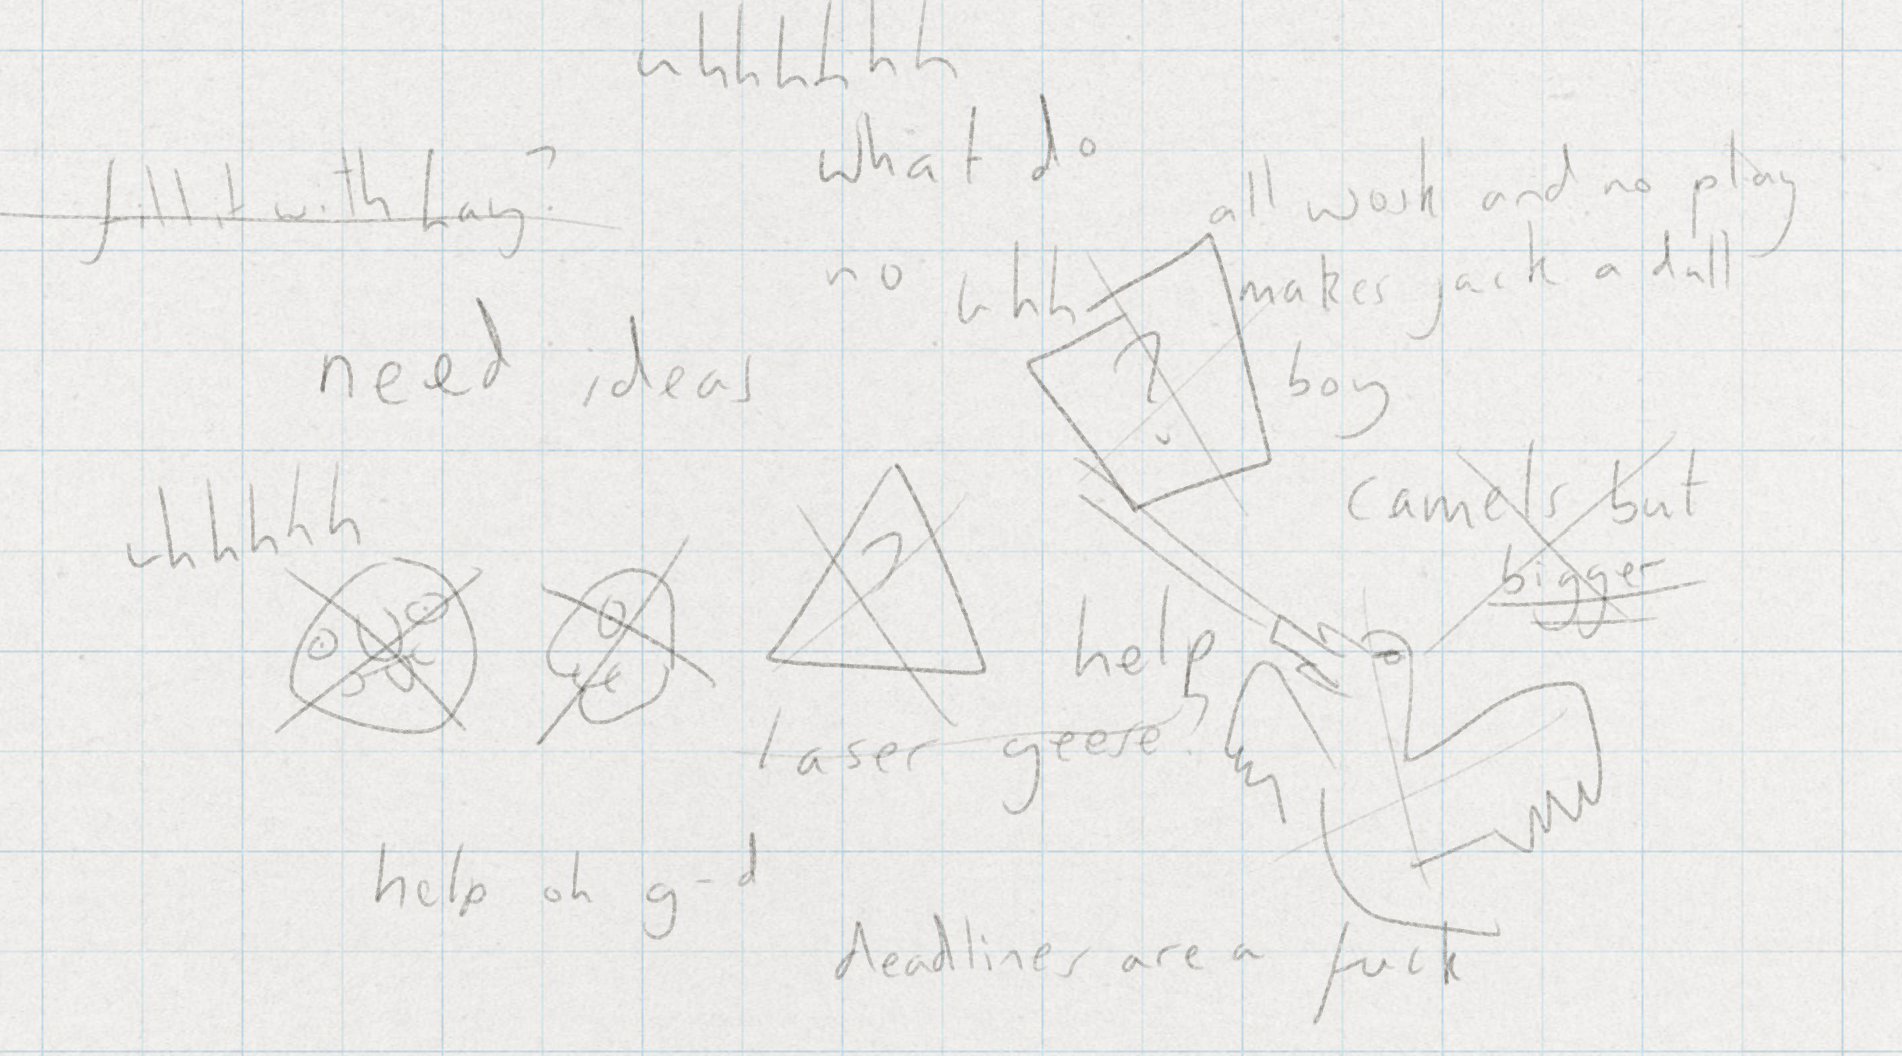 uhhhhhh
what do
fill it with hay?
all work and no play
makes jack a dull
boy
no uhh
?
need ideas
camels but
bigger
uhhhhh
?
help
laser geese?
help oh g-d
deadlines are a fuck